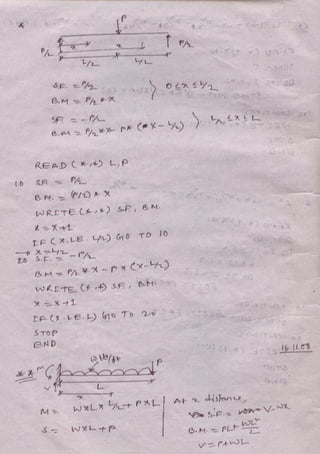 P
P/2 x x P/2
L/2 L/2
S.F. = P/2
B.M = P/2 * X } 0 ≤ x ≤ L/2
SF = - P/2
B.M = P/2 * X - P * (X - L/2) } L/2 ≤ x ≤ L
READ (*,*) L, P
10 SF = P/2
B.M. = (P/2) * X
WRITE (*,*) S.F., B.M.
X = X+1
IF (X.LE. L/2) GO TO 10
→ X = L/2
20 S.F. = - P/2
BM = P/2 * X - P * (X - L/2)
WRITE (*,*) S.F., B.M.
X = X+1
IF (X.LE.L) GO TO 20
STOP
END
14.11.08
** M w lb/ft P
V L
x
M = WXLX L/2 + PXL
S = WXL + P
At x distance,
S.F. = V - wx
B.M. = PL + WL²/2
V = P + WL